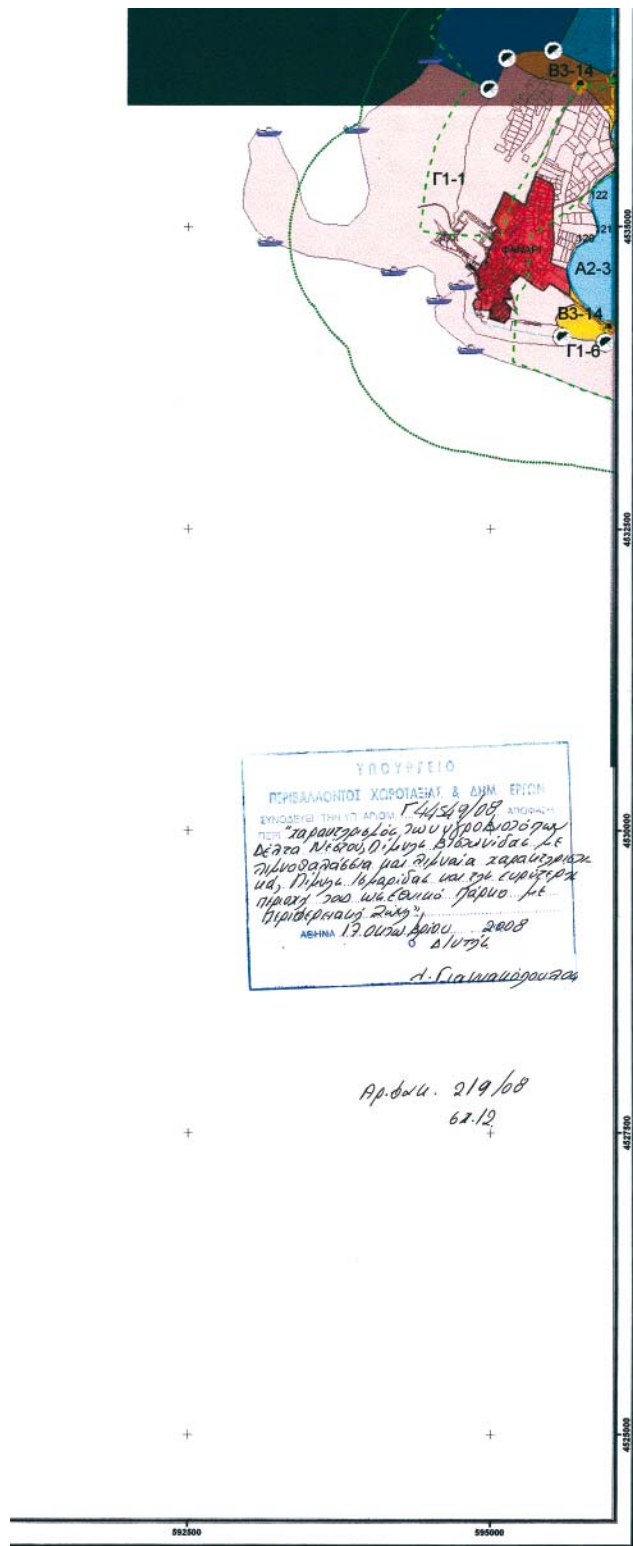 Β3-14
Γ1-1
122
4535000
121
120
ΦΑΝΑΡΙ
Α2-3
Β3-14
Γ1-6
4532500
ΥΠΟΥΡΓΕΙΟ
ΠΕΡΙΒΑΛΛΟΝΤΟΣ ΧΩΡΟΤΑΞΙΑΣ & ΔΗΜ. ΕΡΓΩΝ
ΣΥΝΟΔΕΥΕΙ ΤΗΝ ΥΠ ΑΡΙΘΜ. 44549/08 ΑΠΟΦΑΣΗ
ΠΕΡΙ "χαρακτηρισμός των υγροβιοτόπων
Δέλτα Νέστου, Λίμνης Βιστωνίδας με
λιμνοθαλάσσια και λιμναία χαρακτηριστι
κά, Λίμνης Ισμαρίδας και της ευρύτερης
περιοχή τους ως Εθνικό Πάρκο με
Περιφερειακή Ζώνη"
ΑΘΗΝΑ 17 Οκτωβρίου 2008
Ο Δ/ντής
Γιαννακόπουλος
4530000
Αρ. φακ. 219/08
σχ.12
4527500
4525000
592500
595000